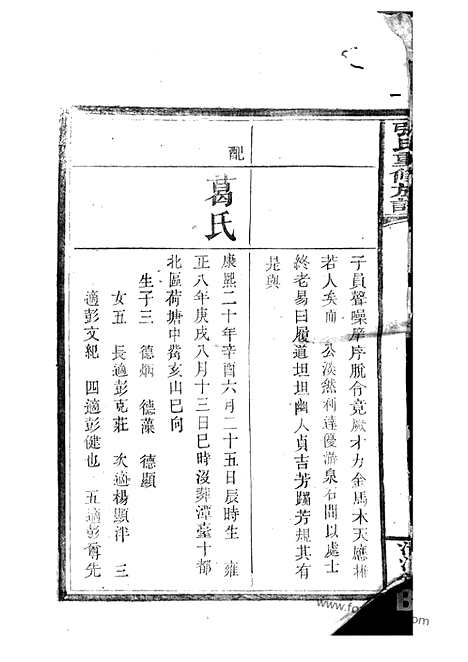 張氏重修族譜
子員聲噪庠序脫令竟厥才力金馬木天應推
若人矣而公淡然利達優游泉石間以處士
終老易曰履道坦坦幽人貞吉芳躅芳規其有
是與
配
葛氏
康熙二十年辛酉六月二十五日辰時生 雍
正八年庚戌八月十三日巳時沒葬潭臺十都
北區荷塘中嘴亥山巳向
生子三 德炳 德藻 德顯
女五 長適彭克莊 次適楊顯洋 三
適彭文紀 四適彭健也 五適彭爵先